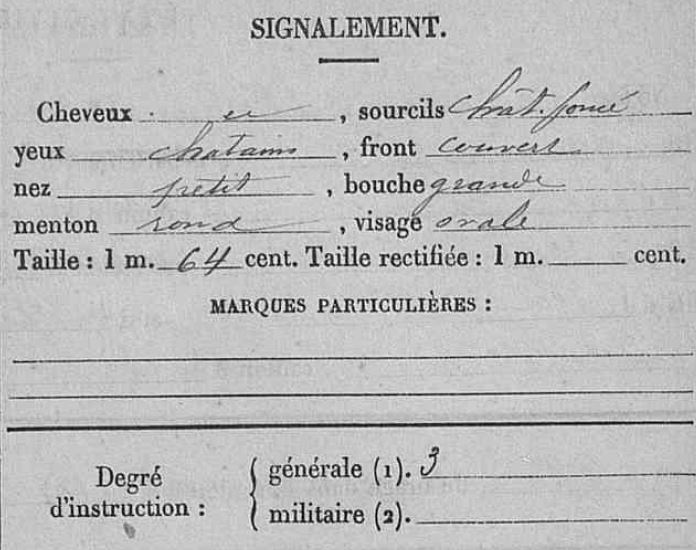 SIGNALEMENT.
Cheveux et , sourcils Chât. foncé
yeux chatains , front couvert
nez petit , bouche grande
menton rond , visage ovale
Taille : 1 m. 64 cent. Taille rectifiée : 1 m. cent.
MARQUES PARTICULIÈRES :
Degré
d'instruction :
générale (1). 3
militaire (2).